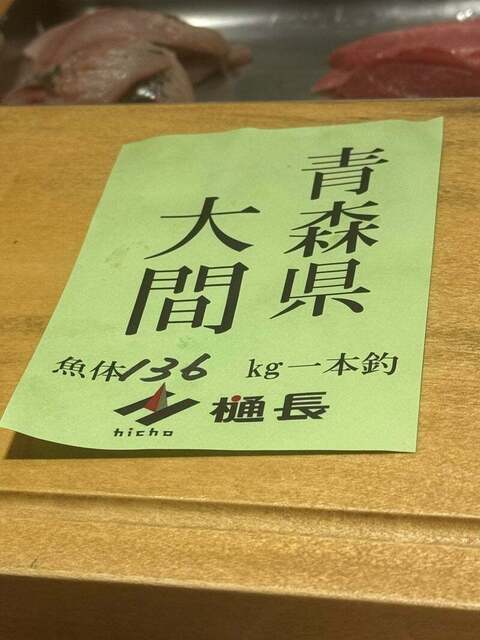 青森県
大間
魚体136 kg一本釣
hicho 樋長